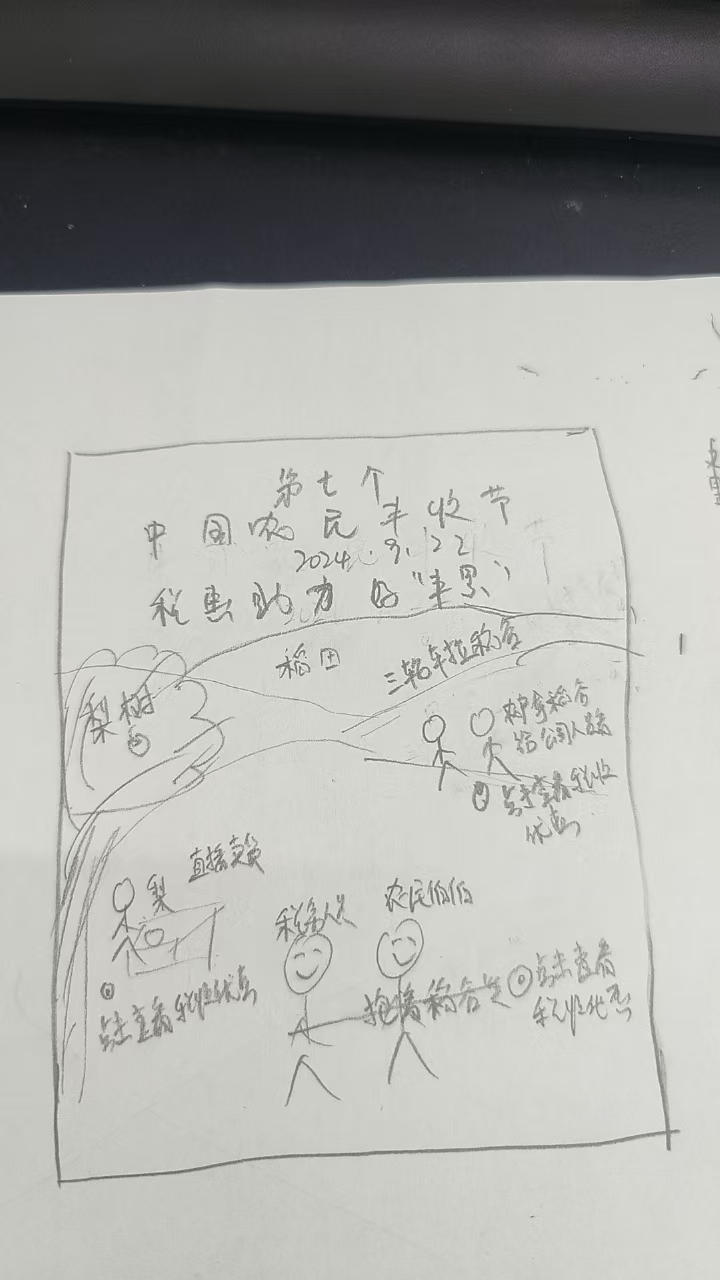 第七个
中国农民丰收节
2024.9.22
税惠助力好"丰景"
稻田
三轮车拉稻谷
梨树
农户拿稻谷
给公司人员
点击查看税收
优惠
直播卖货
梨
税务人员
农民伯伯
点击查看税收优惠
抱着稻谷笑
点击查看
税收优惠